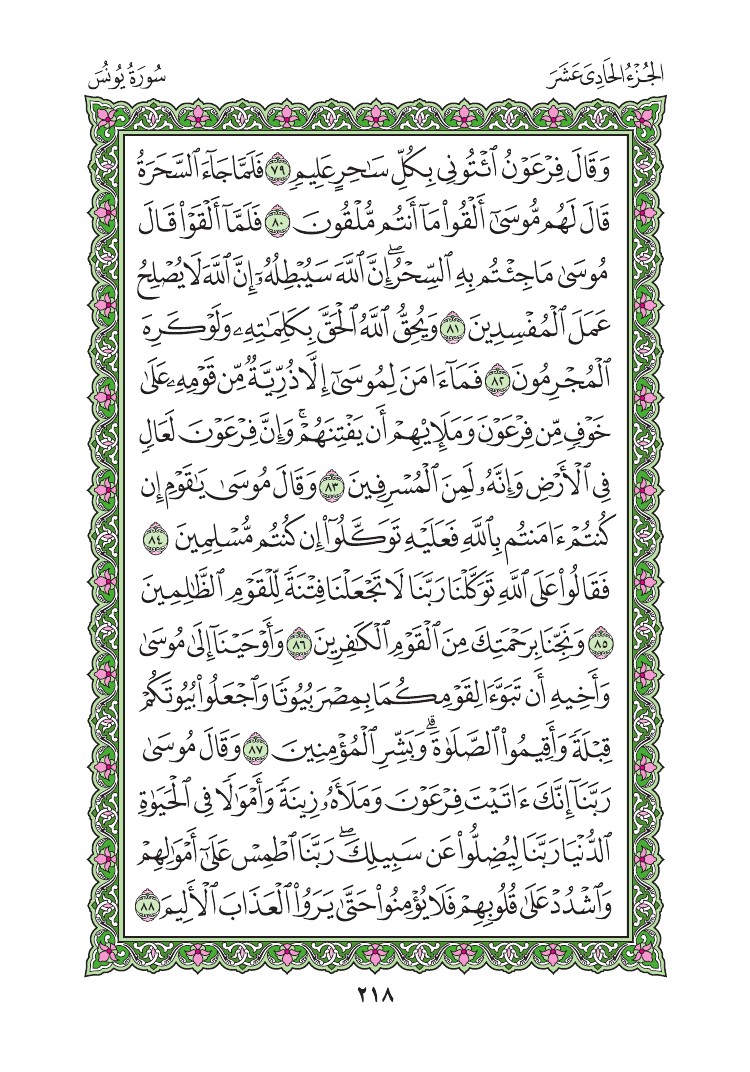 الجُزْءُ الحَادِى عَشَرَ
سُورَةُ يُونُسَ
وَقَالَ فِرْعَوْنُ ٱئْتُونِي بِكُلِّ سَٰحِرٍ عَلِيمٍ ٧٩ فَلَمَّا جَآءَ ٱلسَّحَرَةُ
قَالَ لَهُم مُّوسَىٰٓ أَلْقُوا۟ مَآ أَنتُم مُّلْقُونَ ٨٠ فَلَمَّآ أَلْقَوْا۟ قَالَ
مُوسَىٰ مَا جِئْتُم بِهِ ٱلسِّحْرُۖ إِنَّ ٱللَّهَ سَيُبْطِلُهُۥٓ إِنَّ ٱللَّهَ لَا يُصْلِحُ
عَمَلَ ٱلْمُفْسِدِينَ ٨١ وَيُحِقُّ ٱللَّهُ ٱلْحَقَّ بِكَلِمَٰتِهِۦ وَلَوْ كَرِهَ
ٱلْمُجْرِمُونَ ٨٢ فَمَآ ءَامَنَ لِمُوسَىٰٓ إِلَّا ذُرِّيَّةٌ مِّن قَوْمِهِۦ عَلَىٰ
خَوْفٍ مِّن فِرْعَوْنَ وَمَلَإِي۟هِمْ أَن يَفْتِنَهُمْۚ وَإِنَّ فِرْعَوْنَ لَعَالٍ
فِى ٱلْأَرْضِ وَإِنَّهُۥ لَمِنَ ٱلْمُسْرِفِينَ ٨٣ وَقَالَ مُوسَىٰ يَٰقَوْمِ إِن
كُنتُمْ ءَامَنتُم بِٱللَّهِ فَعَلَيْهِ تَوَكَّلُوٓا۟ إِن كُنتُم مُّسْلِمِينَ ٨٤
فَقَالُوا۟ عَلَى ٱللَّهِ تَوَكَّلْنَا رَبَّنَا لَا تَجْعَلْنَا فِتْنَةً لِّلْقَوْمِ ٱلظَّٰلِمِينَ
٨٥ وَنَجِّنَا بِرَحْمَتِكَ مِنَ ٱلْقَوْمِ ٱلْكَٰفِرِينَ ٨٦ وَأَوْحَيْنَآ إِلَىٰ مُوسَىٰ
وَأَخِيهِ أَن تَبَوَّءَا لِقَوْمِكُمَا بِمِصْرَ بُيُوتًا وَٱجْعَلُوا۟ بُيُوتَكُمْ
قِبْلَةً وَأَقِيمُوا۟ ٱلصَّلَوٰةَۗ وَبَشِّرِ ٱلْمُؤْمِنِينَ ٨٧ وَقَالَ مُوسَىٰ
رَبَّنَآ إِنَّكَ ءَاتَيْتَ فِرْعَوْنَ وَمَلَأَهُۥ زِينَةً وَأَمْوَٰلًا فِى ٱلْحَيَوٰةِ
ٱلدُّنْيَا رَبَّنَا لِيُضِلُّوا۟ عَن سَبِيلِكَۖ رَبَّنَا ٱطْمِسْ عَلَىٰٓ أَمْوَٰلِهِمْ
وَٱشْدُدْ عَلَىٰ قُلُوبِهِمْ فَلَا يُؤْمِنُوا۟ حَتَّىٰ يَرَوُا۟ ٱلْعَذَابَ ٱلْأَلِيمَ ٨٨
٢١٨